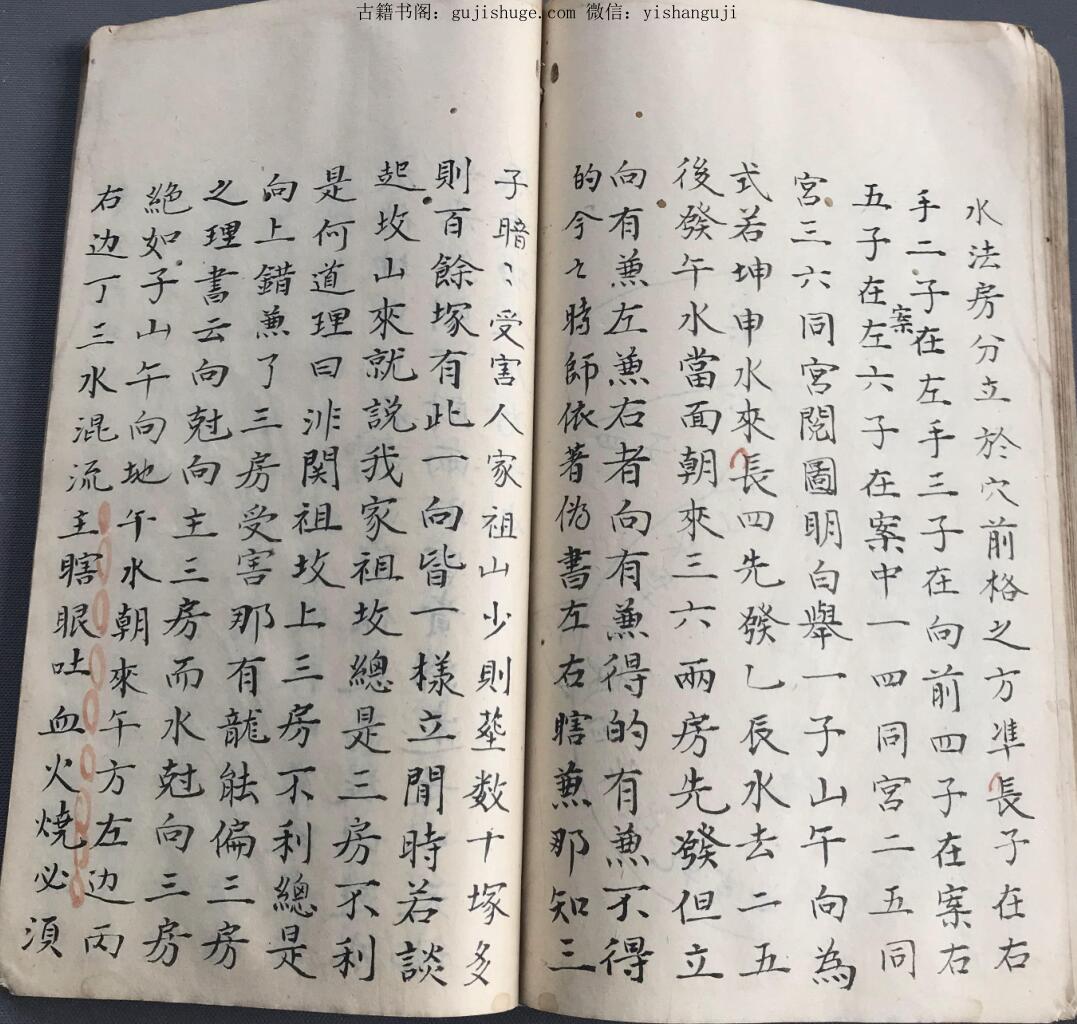 古籍书阁：gujishuge.com 微信：yishanguji
水法房分立於穴前格之方準長子在右
手二子在左手三子在向前四子在案右
五子在左案六子在案中一四同宮二五同
宮三六同宮閱圖明白舉一子山午向為
式若坤申水來長四先發乙辰水去二五
後發午水當面朝來三六兩房先發但立
向有兼左兼右者向有兼得的有兼不得
的今々時師依著偽書左右瞎兼那知三
子暗〻受害人家祖山少則塟数十塚多
則百餘塚有此一向皆一樣立閒時若談
起坟山來就説我家祖坟總是三房不利
是何道理曰非関祖坟上三房不利總是
向上錯兼了三房受害那有龍能偏三房
之理書云向尅向主三房而水尅向三房
絶如子山午向地午水朝來午方左边丙
右边丁三水混流主瞎眼吐血火燒必須